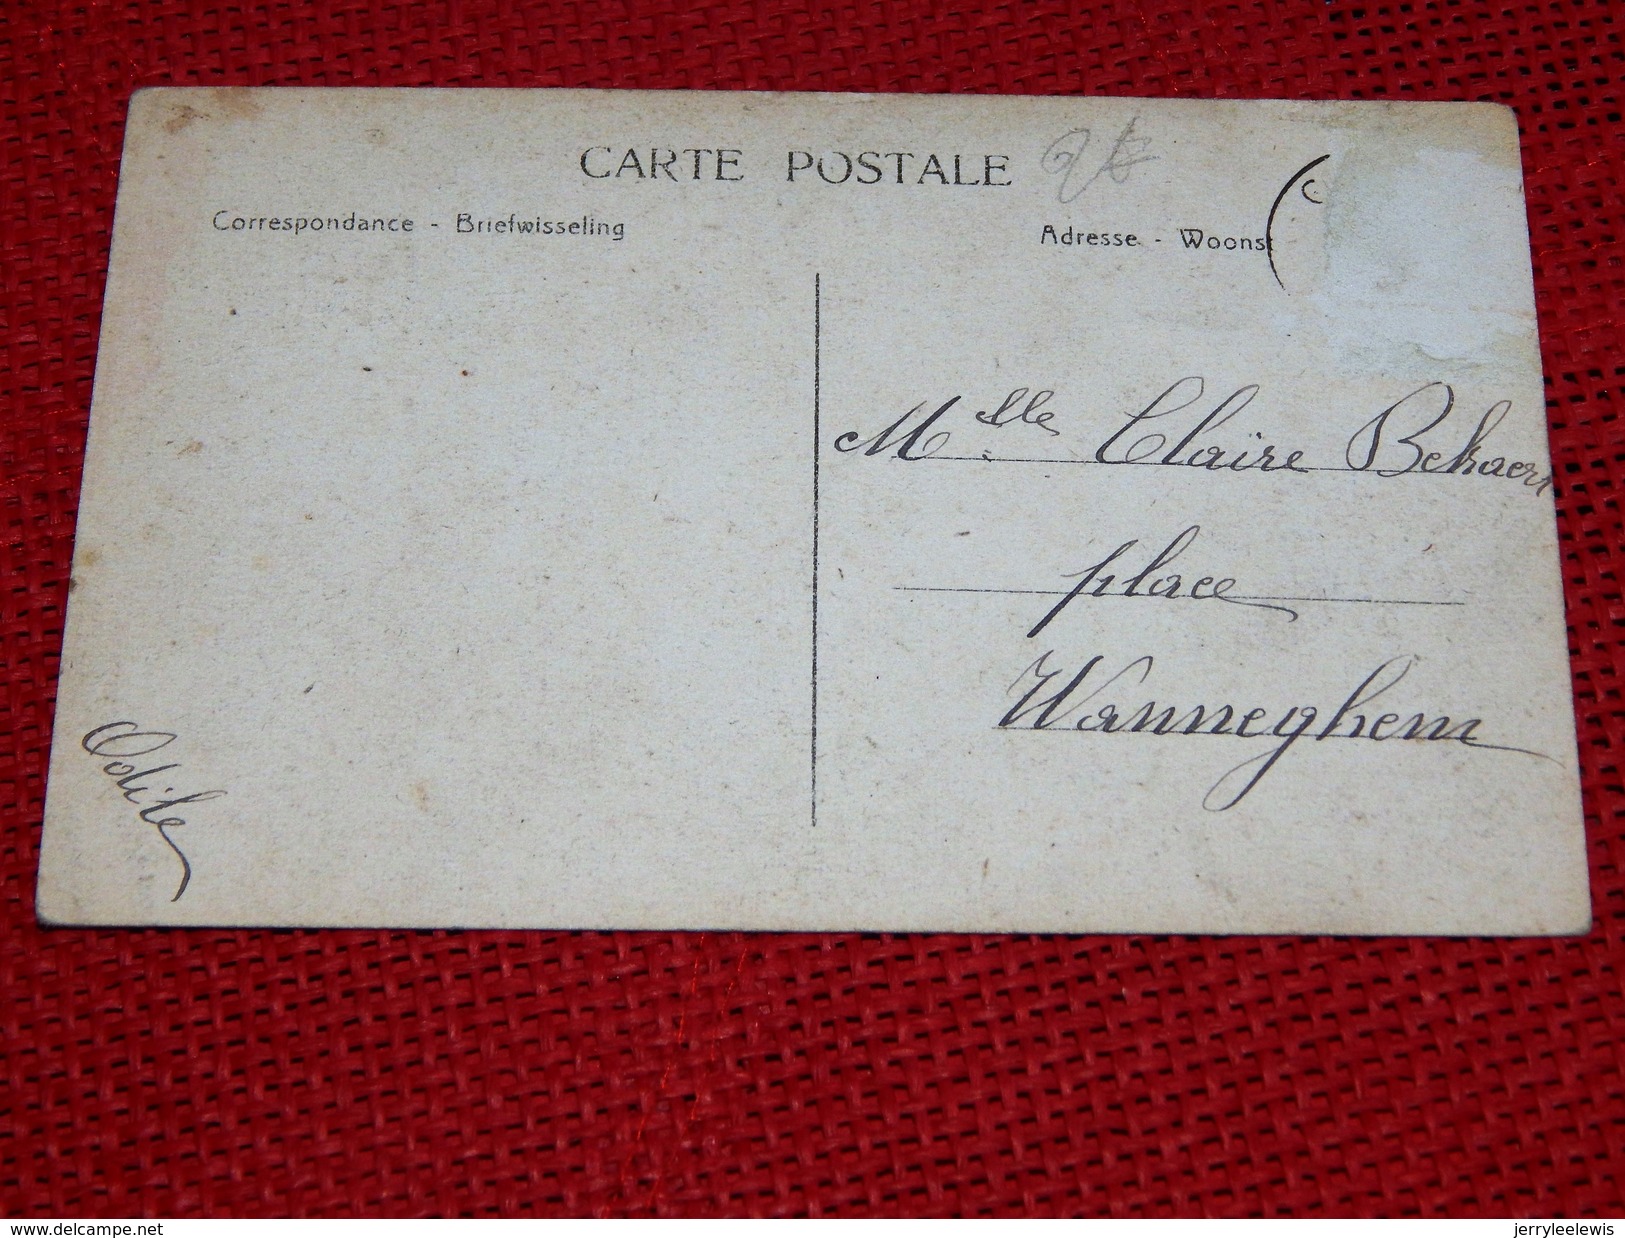 CARTE POSTALE
Correspondance - Briefwisseling
Adresse - Woonst
Mslle Claïre Bekaert
place
Wanneghem
Odile
www.delcampe.net
jerryleelewis